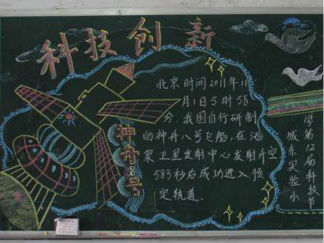 科技创新
北京时间2011年11
月1日5时58
分，我国自行研制
的神舟八号飞船，在酒
泉卫星发射中心发射升空
583秒后成功进入预
定轨道.
神舟8号
城东实验小
学第12届科技节